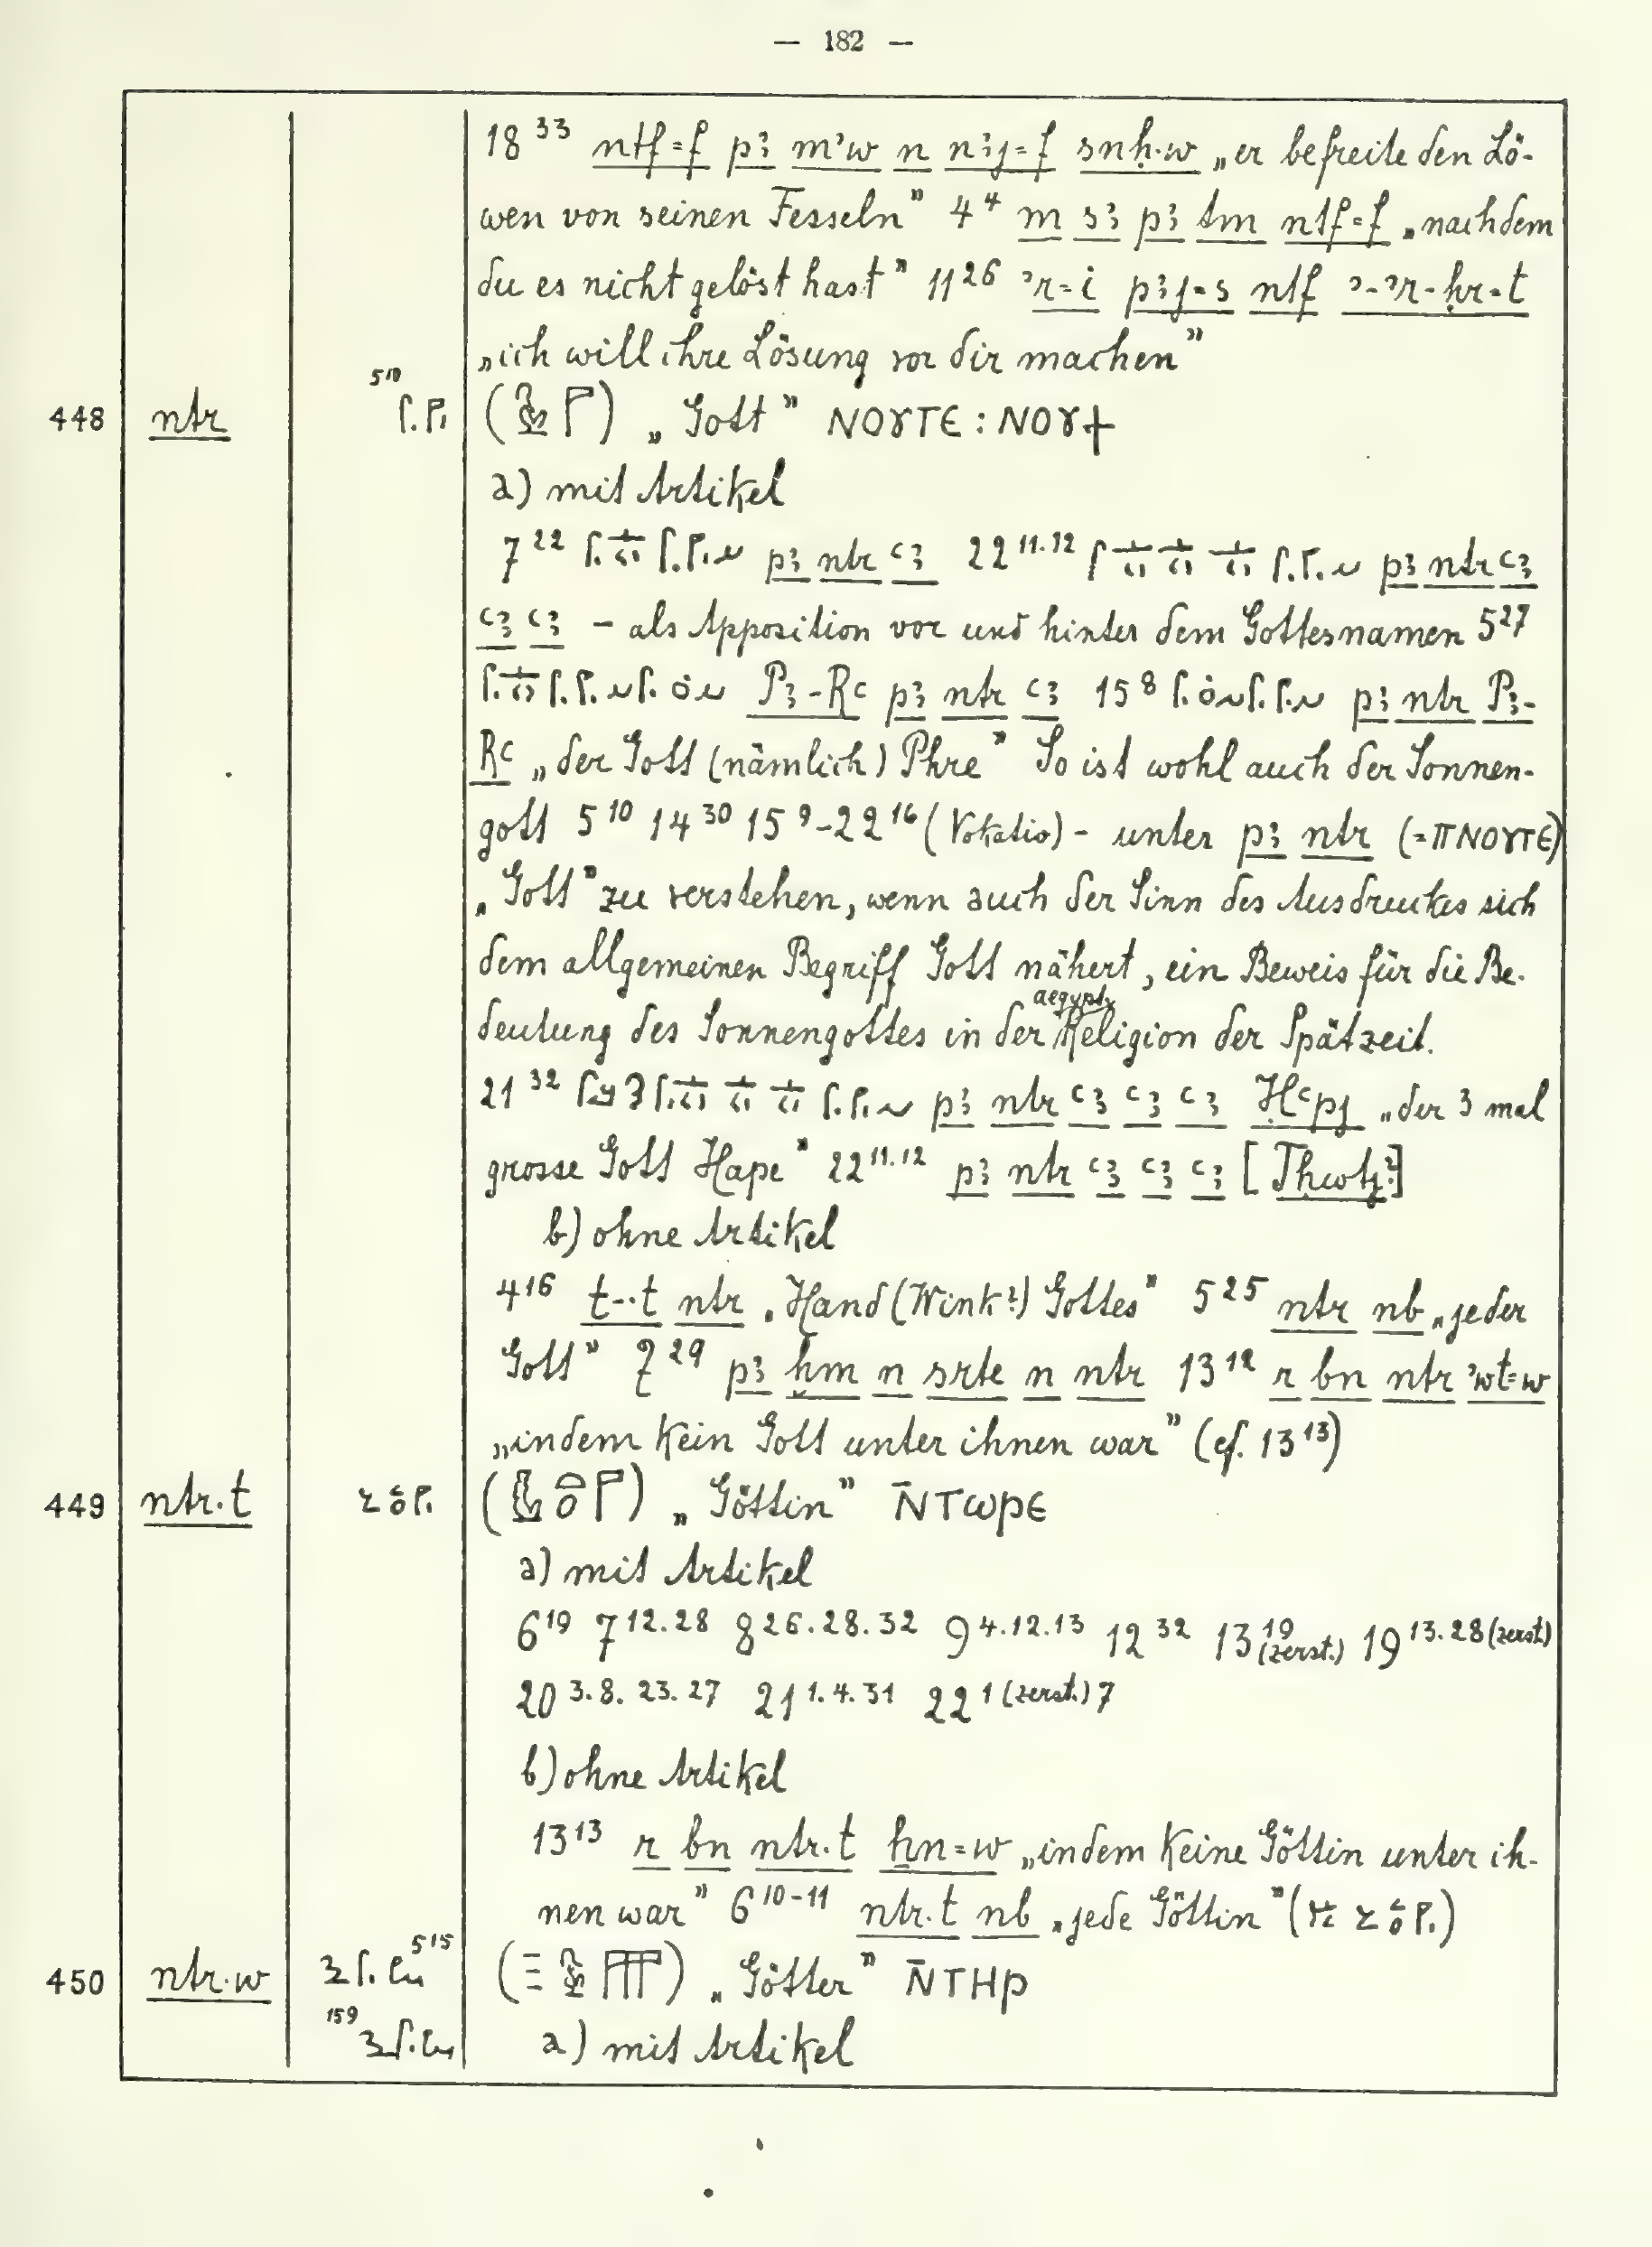 — 182 —
18³³ ntf=f pꜣ mꜥw n nꜣj=f snḥ·w „er befreite den Lö-
wen von seinen Fesseln” 4⁴ m sꜣ pꜣ tm ntf=f „nachdem
du es nicht gelöst hast” 11²⁶ ʾr=i pꜣj=s ntf ʾ-ʾr-ḥr-t
„ich will ihre Lösung vor dir machen”
448 ntr 5¹⁰ „Gott” ⲚⲞⲨⲦⲈ : ⲚⲞⲨϮ
a) mit Artikel
7²² pꜣ ntr ꜥꜣ 22¹¹·¹² pꜣ ntr ꜥꜣ
ꜥꜣ ꜥꜣ – als Apposition vor und hinter dem Gottesnamen 5²⁷
Pꜣ-Rꜥ pꜣ ntr ꜥꜣ 15⁸ pꜣ ntr Pꜣ-
Rꜥ „der Gott (nämlich) Phre” So ist wohl auch der Sonnen-
gott 5¹⁰ 14³⁰ 15⁹-22¹⁶ (Vokativ) – unter pꜣ ntr (=ⲠⲚⲞⲨⲦⲈ)
„Gott” zu verstehen, wenn auch der Sinn des Ausdruckes sich
dem allgemeinen Begriff Gott nähert, ein Beweis für die Be-
deutung des Sonnengottes in der aegypt. Religion der Spätzeit.
21³² pꜣ ntr ꜥꜣ ꜥꜣ ꜥꜣ Ḥꜥpj „der 3 mal
grosse Gott Hape” 22¹¹·¹² pꜣ ntr ꜥꜣ ꜥꜣ ꜥꜣ [Tḥwtj?]
b) ohne Artikel
4¹⁶ t-·t ntr „Hand (Wink?) Gottes” 5²⁵ ntr nb „jeder
Gott” 7²⁹ pꜣ ẖm n srte n ntr 13¹² r bn ntr ʾwt=w
„indem kein Gott unter ihnen war” (cf. 13¹³)
449 ntr·t „Göttin” Ⲛ̄ⲦⲰⲢⲈ
a) mit Artikel
6¹⁹ 7¹²·²⁸ 8²⁶·²⁸·³² 9⁴·¹²·¹³ 12³² 13¹⁹ (zerst.) 19¹³·²⁸ (zerst.)
20³·⁸·²³·²⁷ 21¹·⁴·³¹ 22¹ (zerst.) 7
b) ohne Artikel
13¹³ r bn ntr·t ẖn=w „indem keine Göttin unter ih-
nen war” 6¹⁰⁻¹¹ ntr·t nb „jede Göttin”
450 ntr·w 5¹⁵ „Götter” Ⲛ̄ⲦⲎⲢ
15⁹ a) mit Artikel